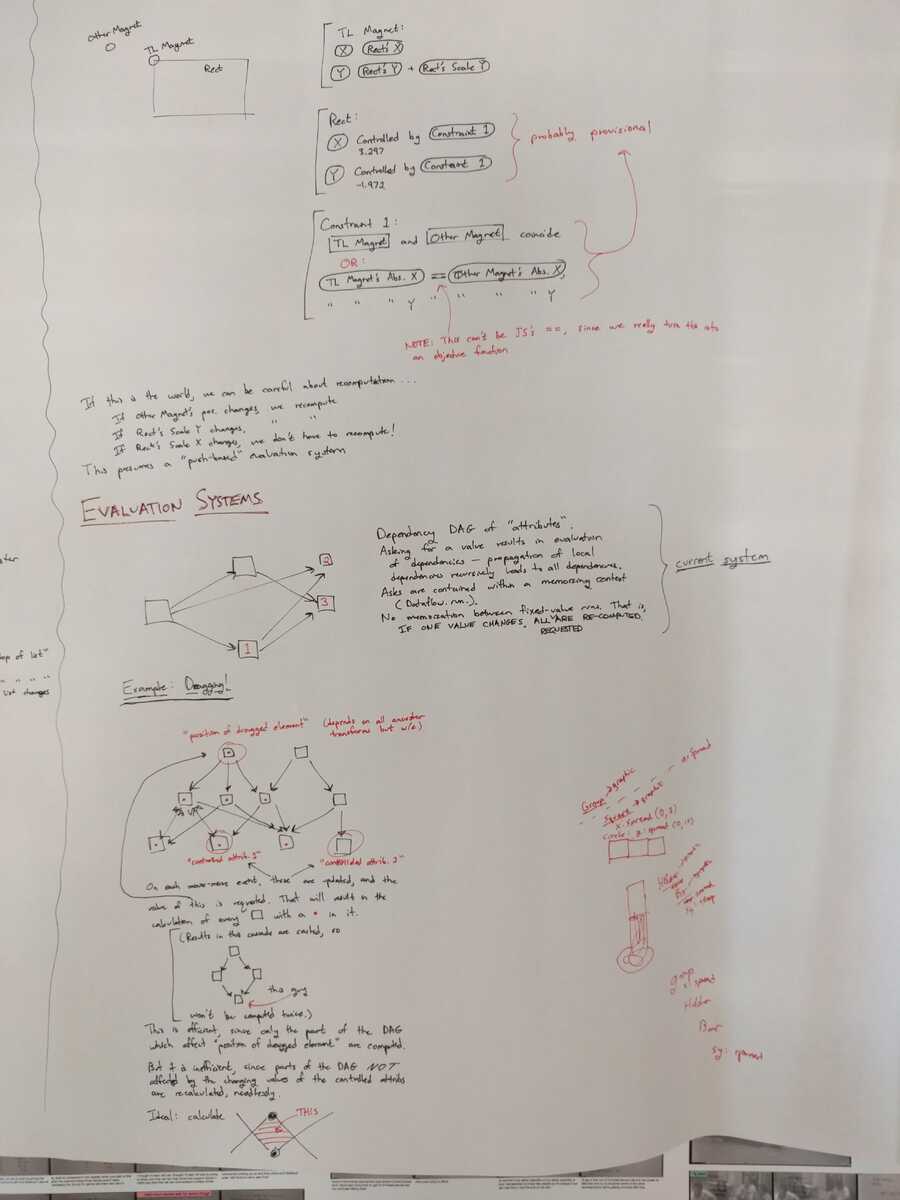 Other Magnet
TL Magnet
Rect
TL Magnet:
X Rect's X
Y Rect's Y + Rect's Scale Y
Rect:
X Controlled by Constraint 1
3.297
Y Controlled by Constraint 1
-1.972
probably provisional
Constraint 1:
TL Magnet and Other Magnet coincide
OR:
TL Magnet's Abs. X == Other Magnet's Abs. X,
" " " Y " " " " Y
NOTE: This can't be JS's ==, since we really turn this into
an objective function
If this is the world, we can be careful about recomputation ...
If Other Magnet's pos. changes, we recompute
If Rect's Scale Y changes, " "
If Rect's Scale X changes, we don't have to recompute!
This presumes a "push-based" evaluation system
EVALUATION SYSTEMS
2
3
1
Dependency DAG of "attributes".
Asking for a value results in evaluation
of dependencies — propagation of local
dependencies recursively leads to all dependencies.
Asks are contained within a memoizing context
(Dataflow.run.).
No memoization between fixed-value runs. That is,
IF ONE VALUE CHANGES, ALL ARE RE-COMPUTED.
REQUESTED
current system
op of list"
" " " "
list changes
Example: Dragging!
"position of dragged element" (depends on all ancestor
transforms but w/e.)
"controlled attrib. 1" "controlled attrib. 2"
On each mouse-move event, these are updated, and the
value of this is requested. That will result in the
calculation of every □ with a • in it.
(Results in this cascade are cached, so
this guy
won't be computed twice.)
This is efficient, since only the part of the DAG
which affect "position of dragged element" are computed.
But it is inefficient, since parts of the DAG NOT
affected by the changing values of the controlled attribs
are recalculated, needlessly.
Ideal: calculate THIS
Group → graphic
spread
→ graphic
x: spread (0, 3)
circle:
group
spread
Hidden
Bar
sy: spread